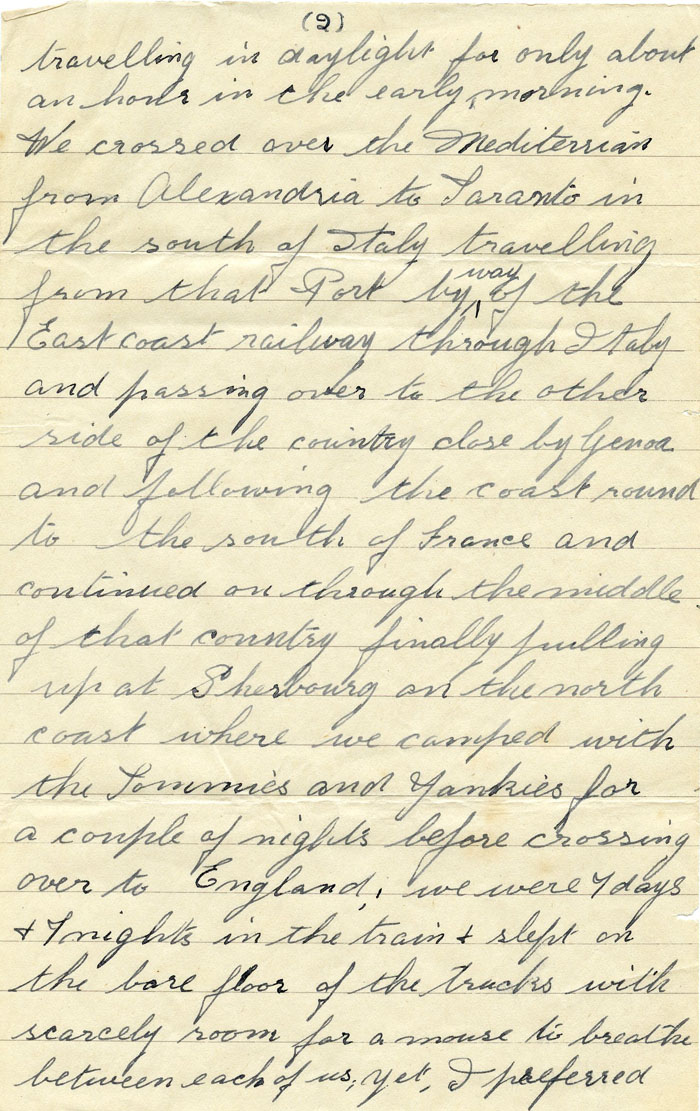 (2)
travelling in daylight for only about
an hour in the early, morning.
We crossed over the Mediterrian
from Alexandria to Taranto in
the south of Italy travelling
from that Port by way of the
East coast railway through Italy
and passing over to the other
side of the country close by Genoa
and following the coast round
to the south of France and
continued on through the middle
of that country finally pulling
up at Sherbourg on the north
coast where we camped with
the Tommies and Yankies for
a couple of nights before crossing
over to England, we were 7 days
& 7 nights in the train & slept on
the bare floor of the trucks with
scarcely room for a mouse to breathe
between each of us; yet, I preferred